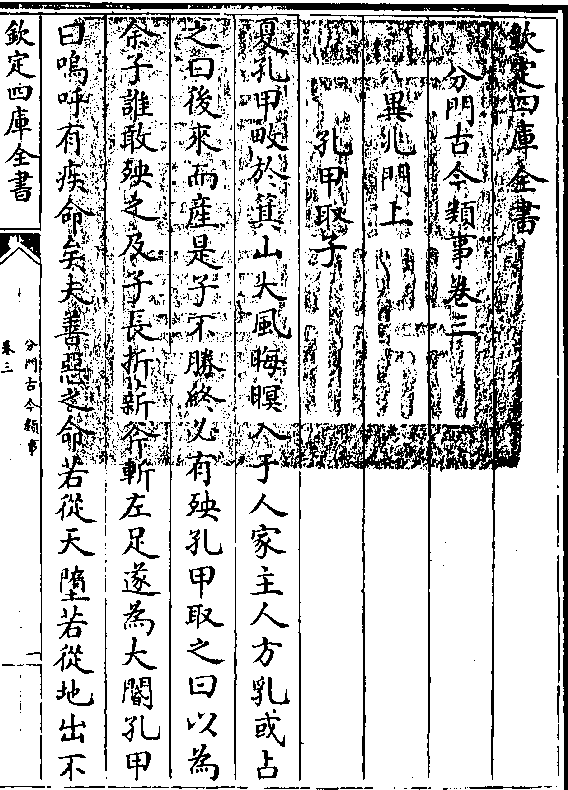 欽定四庫全書
分門古今類事卷三
異兆門上
孔甲取子
夏孔甲畋於箕山大風晦暝入于人家主人方乳或占
之曰後來而産是子不勝終必有殃孔甲取之曰以為
余子誰敢殃之及子長折薪斧斬左足遂為大閽孔甲
曰嗚呼有疾命矣夫善惡之命若從天墮若從地出不
欽定四庫全書
分門古今類事
卷三
一